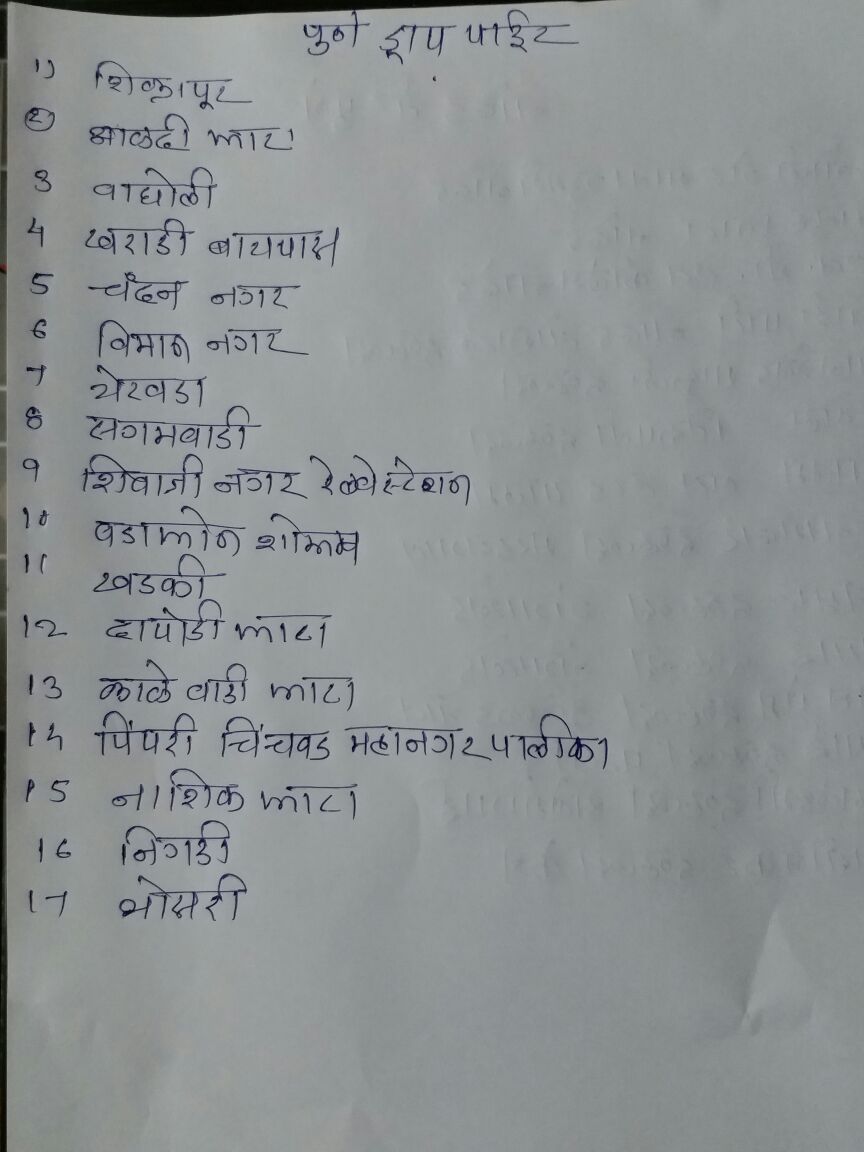 पुणे ड्राप पाईट
1) शिक्रापूर
2) आळदी फाटा
3 वाघोली
4 खराडी बायपास
5 चंदन नगर
6 विमान नगर
7 येरवडा
8 सगमवाडी
9 शिवाजी नगर रेल्वेस्टेशन
10 वडाफोन शोरूम
11 खडकी
12 दापोडी फाटा
13 काळे वाडी फाटा
14 पिंपरी चिंचवड महानगरपालीका
15 नाशिक फाटा
16 निगडी
17 भोसरी